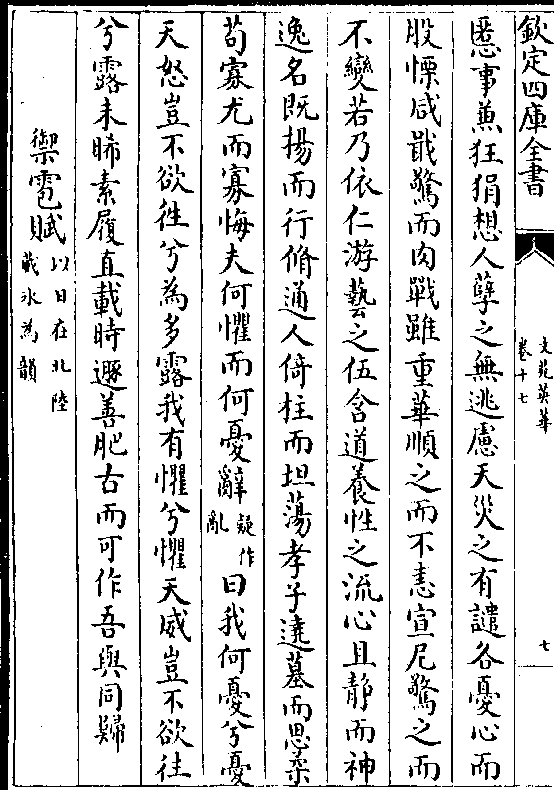 欽定四庫全書
文苑英華
卷十七
七
慝事兼狂狷想人孽之無逃慮天災之有譴各憂心而
股慄咸戢驚而肉戰雖重華順之而不恚宣尼驚之而
不變若乃依仁游藝之伍含道養性之流心且靜而神
逸名既揚而行脩通人倚柱而坦蕩孝子遶墓而思柔
苟寡尤而寡悔夫何懼而何憂辭疑作亂曰我何憂兮憂
天怒豈不欲徃兮為多露我有懼兮懼天威豈不欲往
兮露未晞素履直載時遯善肥古而可作吾與同歸
禦雹賦以日在北陸藏氷為韻